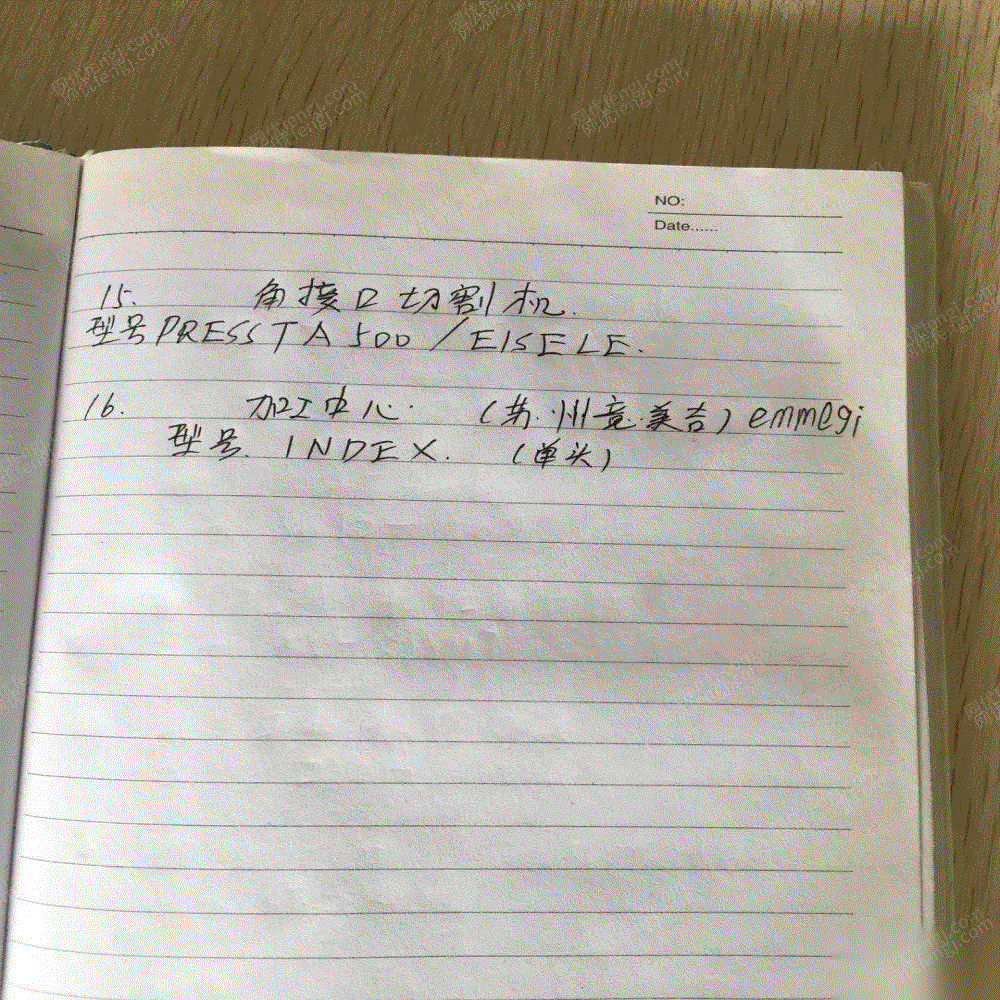 NO:
Date......
15. 角接口切割机.
型号PRESSTA 500 / EISELE.
16. 加工中心. (苏.州竟.美吉) emmegi
型号. INDEX. (单头)